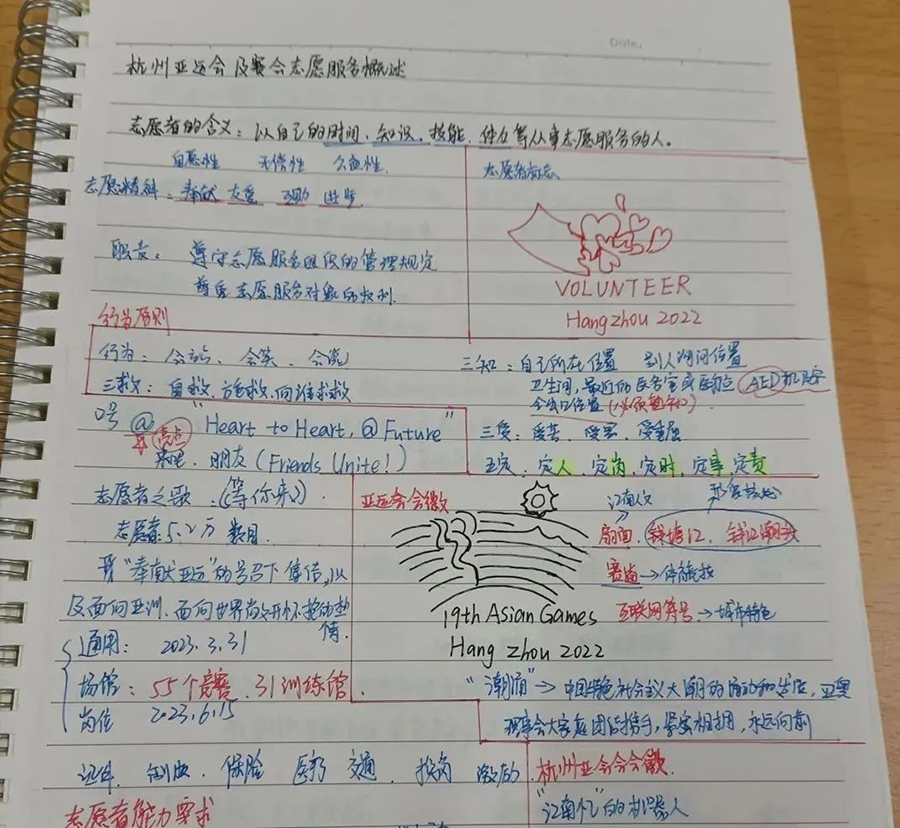 Date.
杭州亚运会及赛会志愿服务概述
志愿者的含义：以自己的时间、知识、技能、体力等从事志愿服务的人。
自愿性 无偿性 公益性
志愿精神：奉献 友爱 互助 进步
志愿者标志
VOLUNTEER
Hangzhou 2022
职责：遵守志愿服务组织的管理规定
尊重志愿服务对象的权利
行为原则
行为：会站、会笑、会说
三救：自救、施救、向谁求救
三知：自己所在位置 别人询问位置
卫生间，最近的医务室或医疗点 AED
位置（必须熟知）
口号 @ "Heart to Heart, @ Future"
亮点
朋友（Friends Unite！）
三受：受苦、受累、受委屈
五定：定人、定岗、定时、定事、定责
志愿者之歌：《等你来》
志愿者：5.2万
"奉献亚运"的号召下集结，以
及面向亚洲、面向世界敞开怀抱的热
情
通用：2023.3.31
场馆：55个竞赛、31训练馆
岗位 2023.6.15
亚运会会徽
19th Asian Games
Hang zhou 2022
江南人文
扇面、钱塘江、钱江潮头
赛道→体育竞技
互联网符号→城市特色
"潮涌"→中国特色社会主义大潮的涌动和发展，亚奥
理事会大家庭团结携手，紧密相拥，永远向前
证件 制服 保险 医疗 交通 激励
志愿者能力要求
杭州亚
"江南忆"的机器人